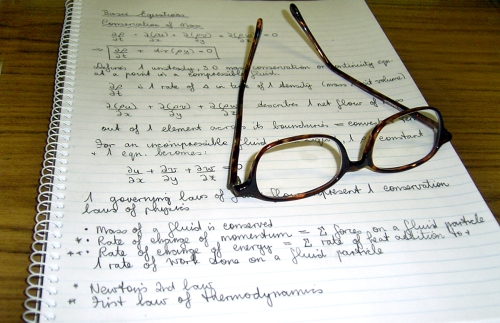 Basic Equations
Conservation of Mass
∂ρ/∂t + ∂(ρu)/∂x + ∂(ρv)/∂y + ∂(ρw)/∂z = 0
⇒ ∂ρ/∂t + div(ρu) = 0
Defines 1 unsteady, 3D mass conservation or continuity eqn.
at a point in a compressible fluid.
∂ρ/∂t is 1 rate of Δ in 1 density (mass volume)
∂(ρu)/∂x + ∂(ρv)/∂y + ∂(ρw) describes 1 net flow of
out of 1 element across its boundaries =
For an incompressible fluid 1 constant
+ 1 eqn. becomes:
∂u/∂x + ∂v/∂y + ∂w/∂z
1 governing laws of flow represent 1 conservation
laws of physics
• Mass of a fluid is conserved
* • Rate of change of momentum = Σ forces on a fluid particle
** • Rate of change of energy = Σ rate of heat addition to +
1 rate of work done on a fluid particle
* Newton's 2nd law
** First law of thermodynamics